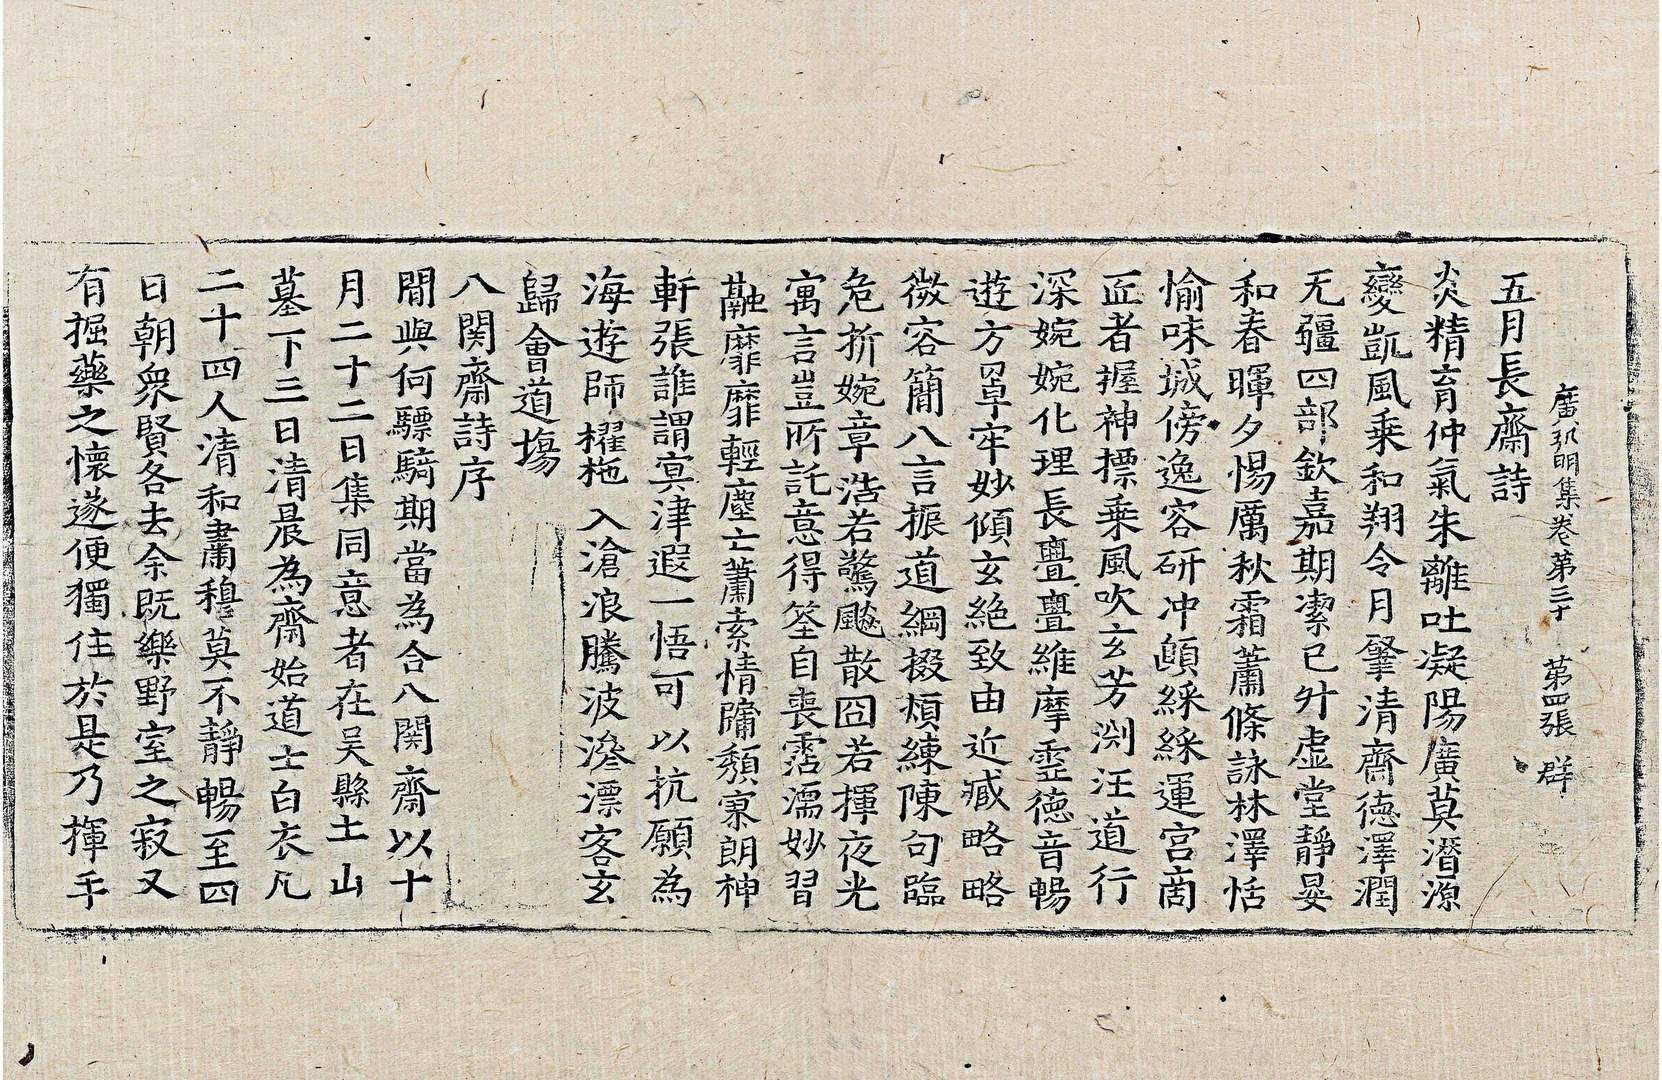 廣弘明集卷第三十 第四張 群
五月長齋詩
炎精育仲氣朱離吐凝陽廣莫潛源
變凱風乗和翔令月肇清齋德澤潤
无疆四部欽嘉期潔己升虛堂靜晏
和春暉夕惕厲秋霜蕭條詠林澤恬
愉味城傍逸容研冲賾綵綵運宮商
匠者握神摽乗風吹玄芳渕汪道行
深婉婉化理長亹亹維摩虛德音暢
遊方罩牢妙傾玄絕致由近臧略略
微容簡八言振道綱掇煩練陳句臨
危折婉章浩若驚飈散囧若揮夜光
寓言豈所託意得筌自喪霑濡妙習
融靡靡輕塵亡蕭索情牗頹寡朗神
軒張誰謂冥津遐一悟可以抗願為
海遊師櫂柂入滄浪騰波滲漂客玄
歸會道塲
八関齋詩序
間與何驃騎期當為合八関齋以十
月二十二日集同意者在吴縣土山
墓下三日清晨為齋始道士白衣凡
二十四人清和肅穆莫不靜暢至四
日朝衆賢各去余既樂野室之寂又
有掘藥之懷遂便獨住於是乃揮手